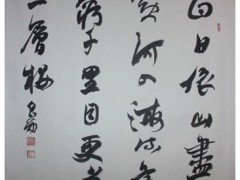 白日依山盡
黃河入海流
窮千里目更
一層樓